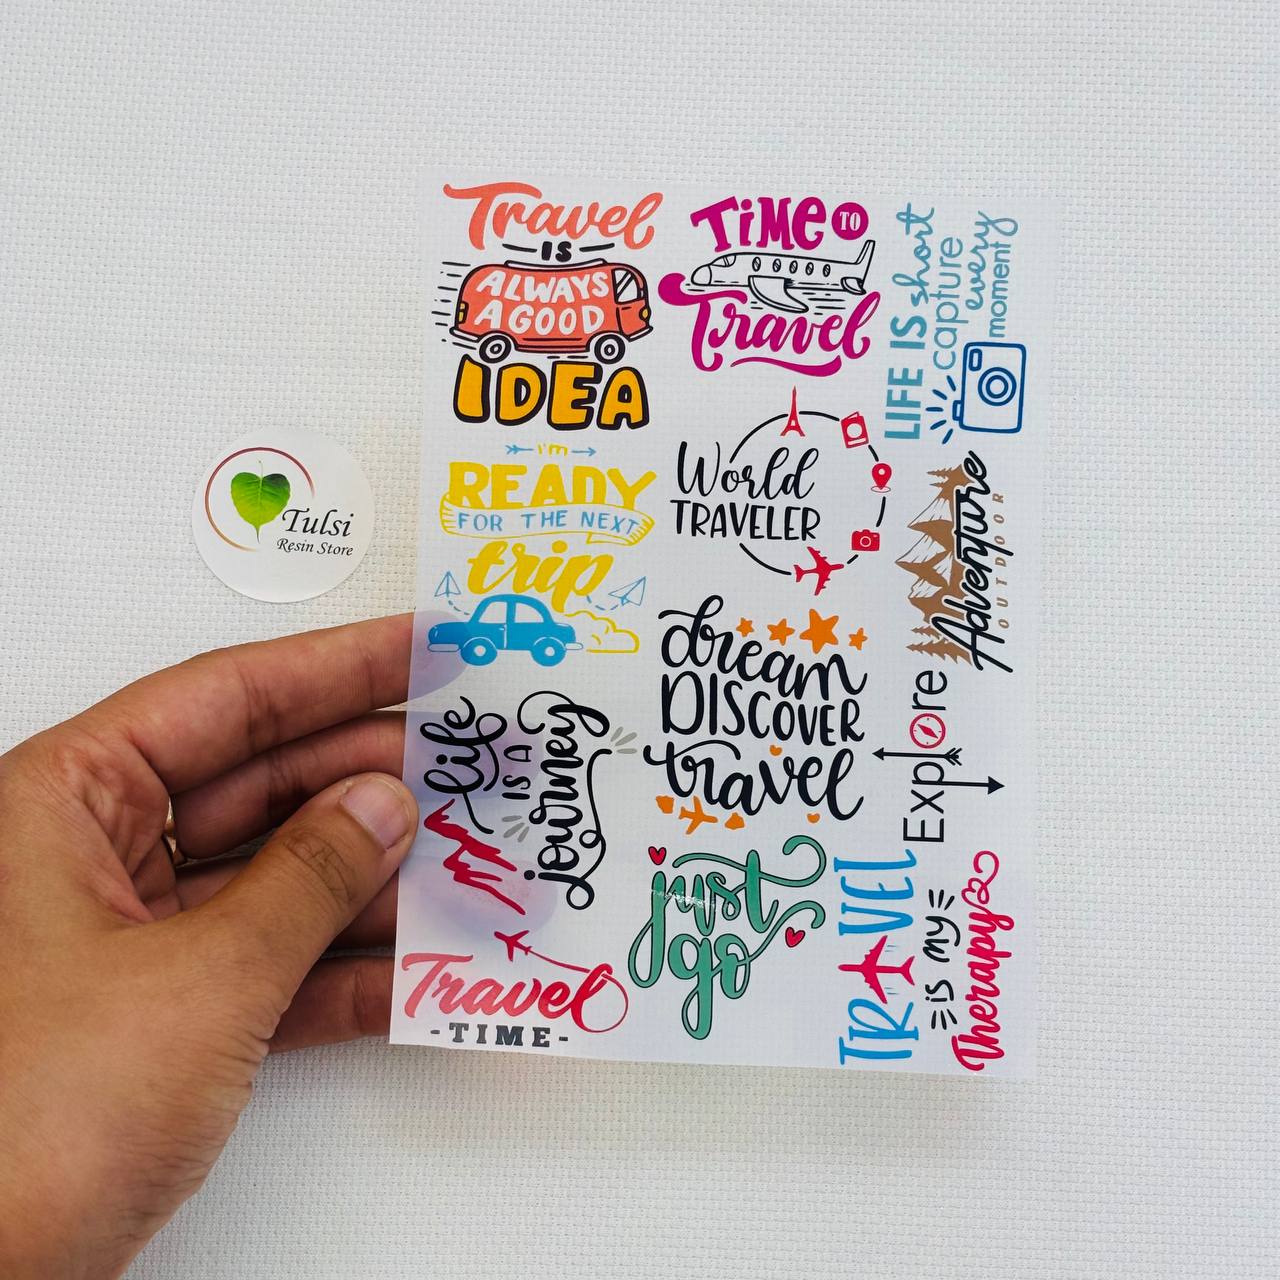 Travel
IS
ALWAYS
A GOOD
IDEA
TIME TO
Travel
LIFE IS short
capture
every
moment
I'm
READY
FOR THE NEXT
trip
World
TRAVELER
Adventure
OUTDOOR
Tulsi
Resin Store
dream
DISCOVER
travel
Explore
life
IS A
journey
just
go
TRAVEL
is my
Therapy
Travel
-TIME-